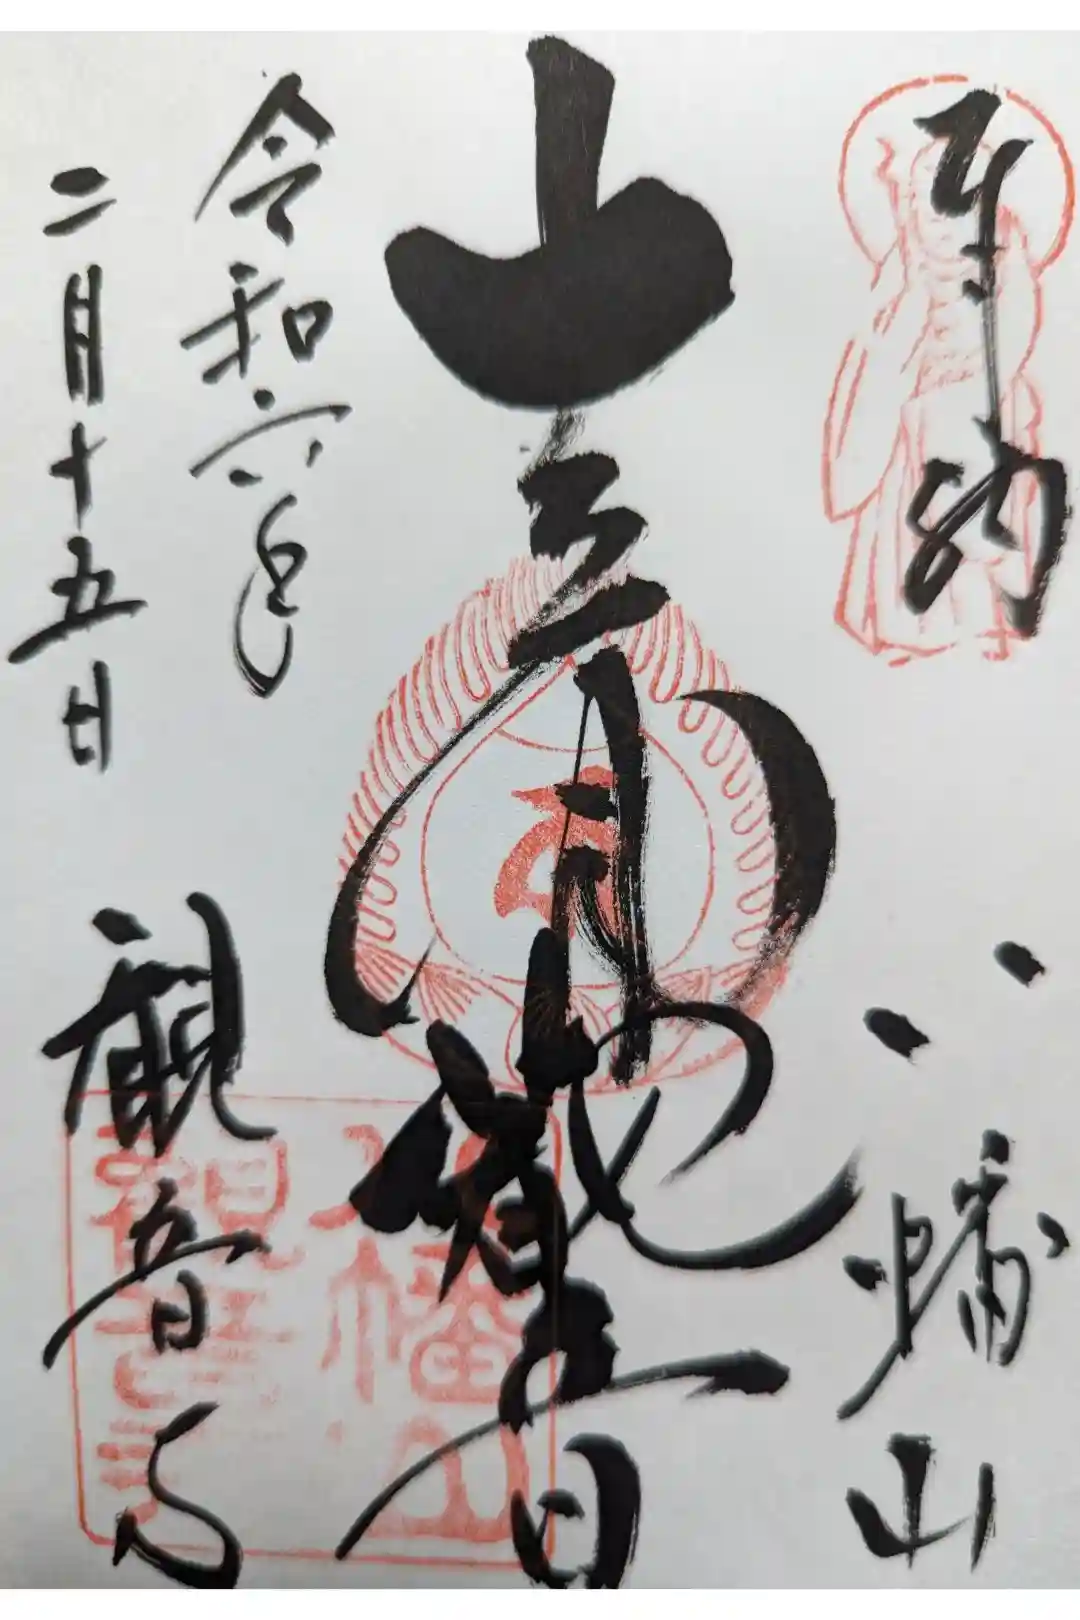 奉納
八幡山
観音
令和六年
二月十五日
観音寺
八幡山
観音寺